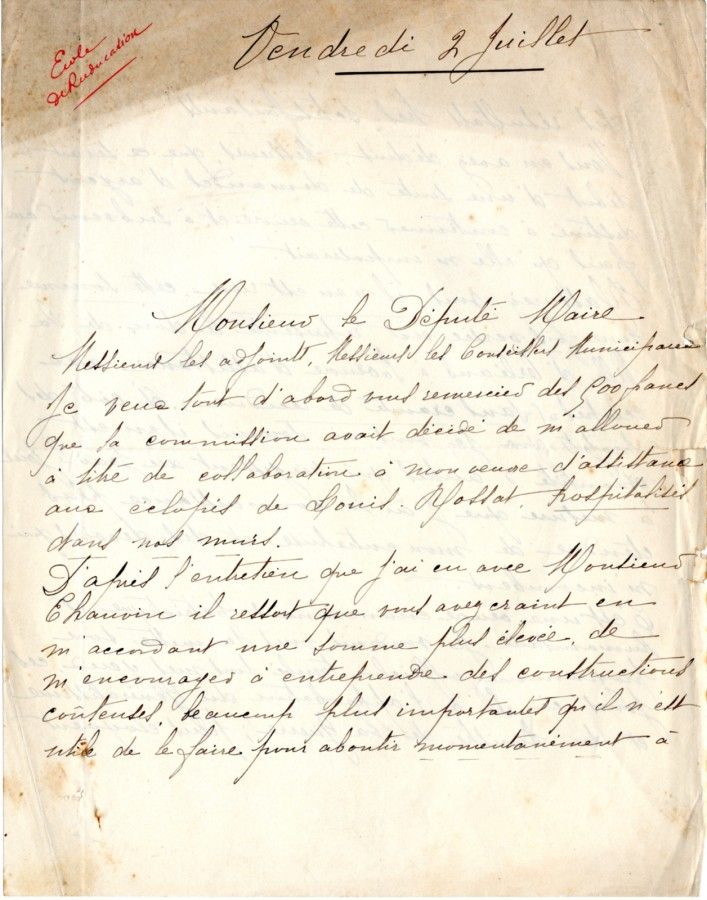 Ecole
de Rééducation
Vendredi 2 Juillet
Monsieur le Député Maire
Messieurs les adjoints, Messieurs les Conseillers Municipaux
Je veux tout d'abord vous remercier des 500 francs
que la commission avait décidé de m'allouer
à titre de collaboration à mon œuvre d'assistance
aux éclopés de Louis Rossat, hospitalisés
dans nos murs.
D'après l'entretien que j'ai eu avec Monsieur
Chauvin il ressort que vous avez craint en
m'accordant une somme plus élevée, de
m'encourager à entreprendre des constructions
coûteuses, beaucoup plus importantes qu'il n'est
utile de le faire pour aboutir momentanément à